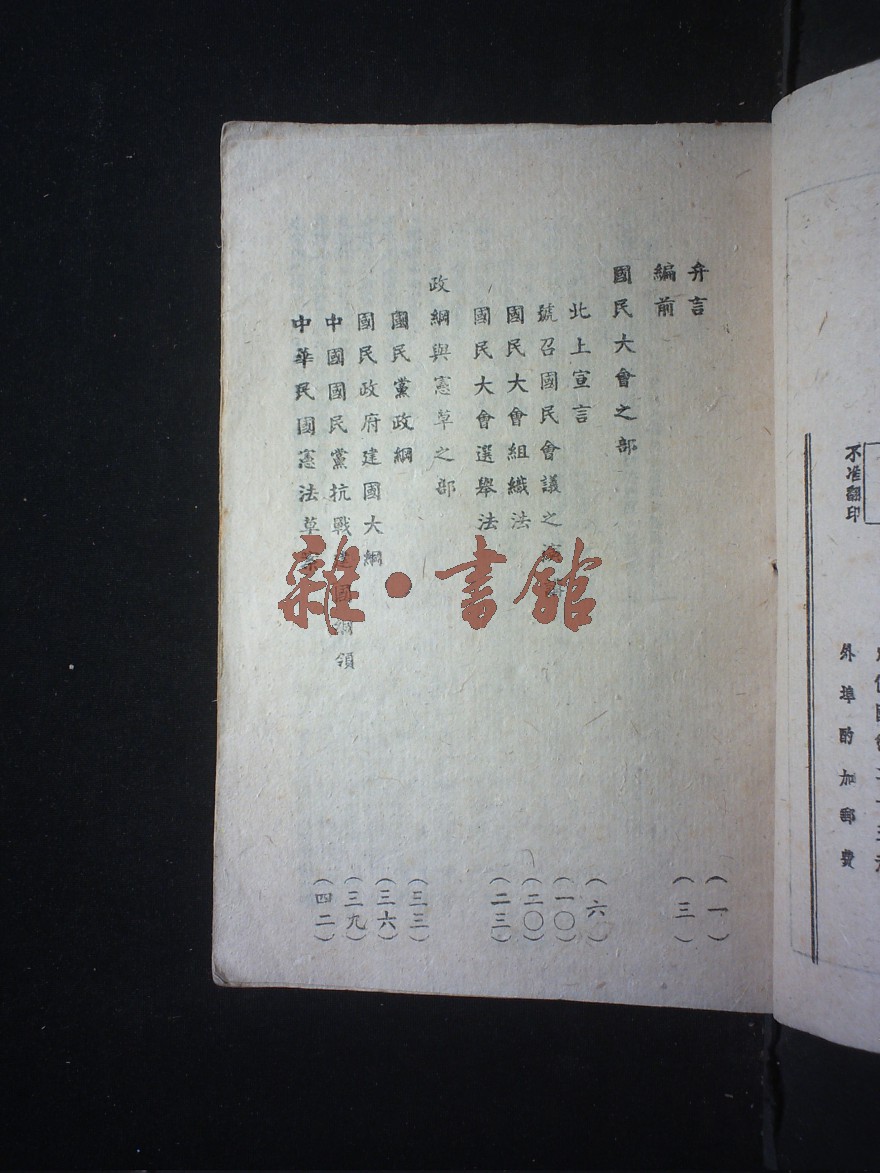 弁言 (一)
編前 (三)
國民大會之部
北上宣言 (六)
號召國民會議之 (一〇)
國民大會組織法 (二〇)
國民大會選舉法 (二三)
政綱與憲草之部
國民黨政綱 (三三)
國民政府建國大綱 (三六)
中國國民黨抗戰建國綱領 (三九)
中華民國憲法草案 (四二)
雜·書館
不准翻印
外埠酌加郵費